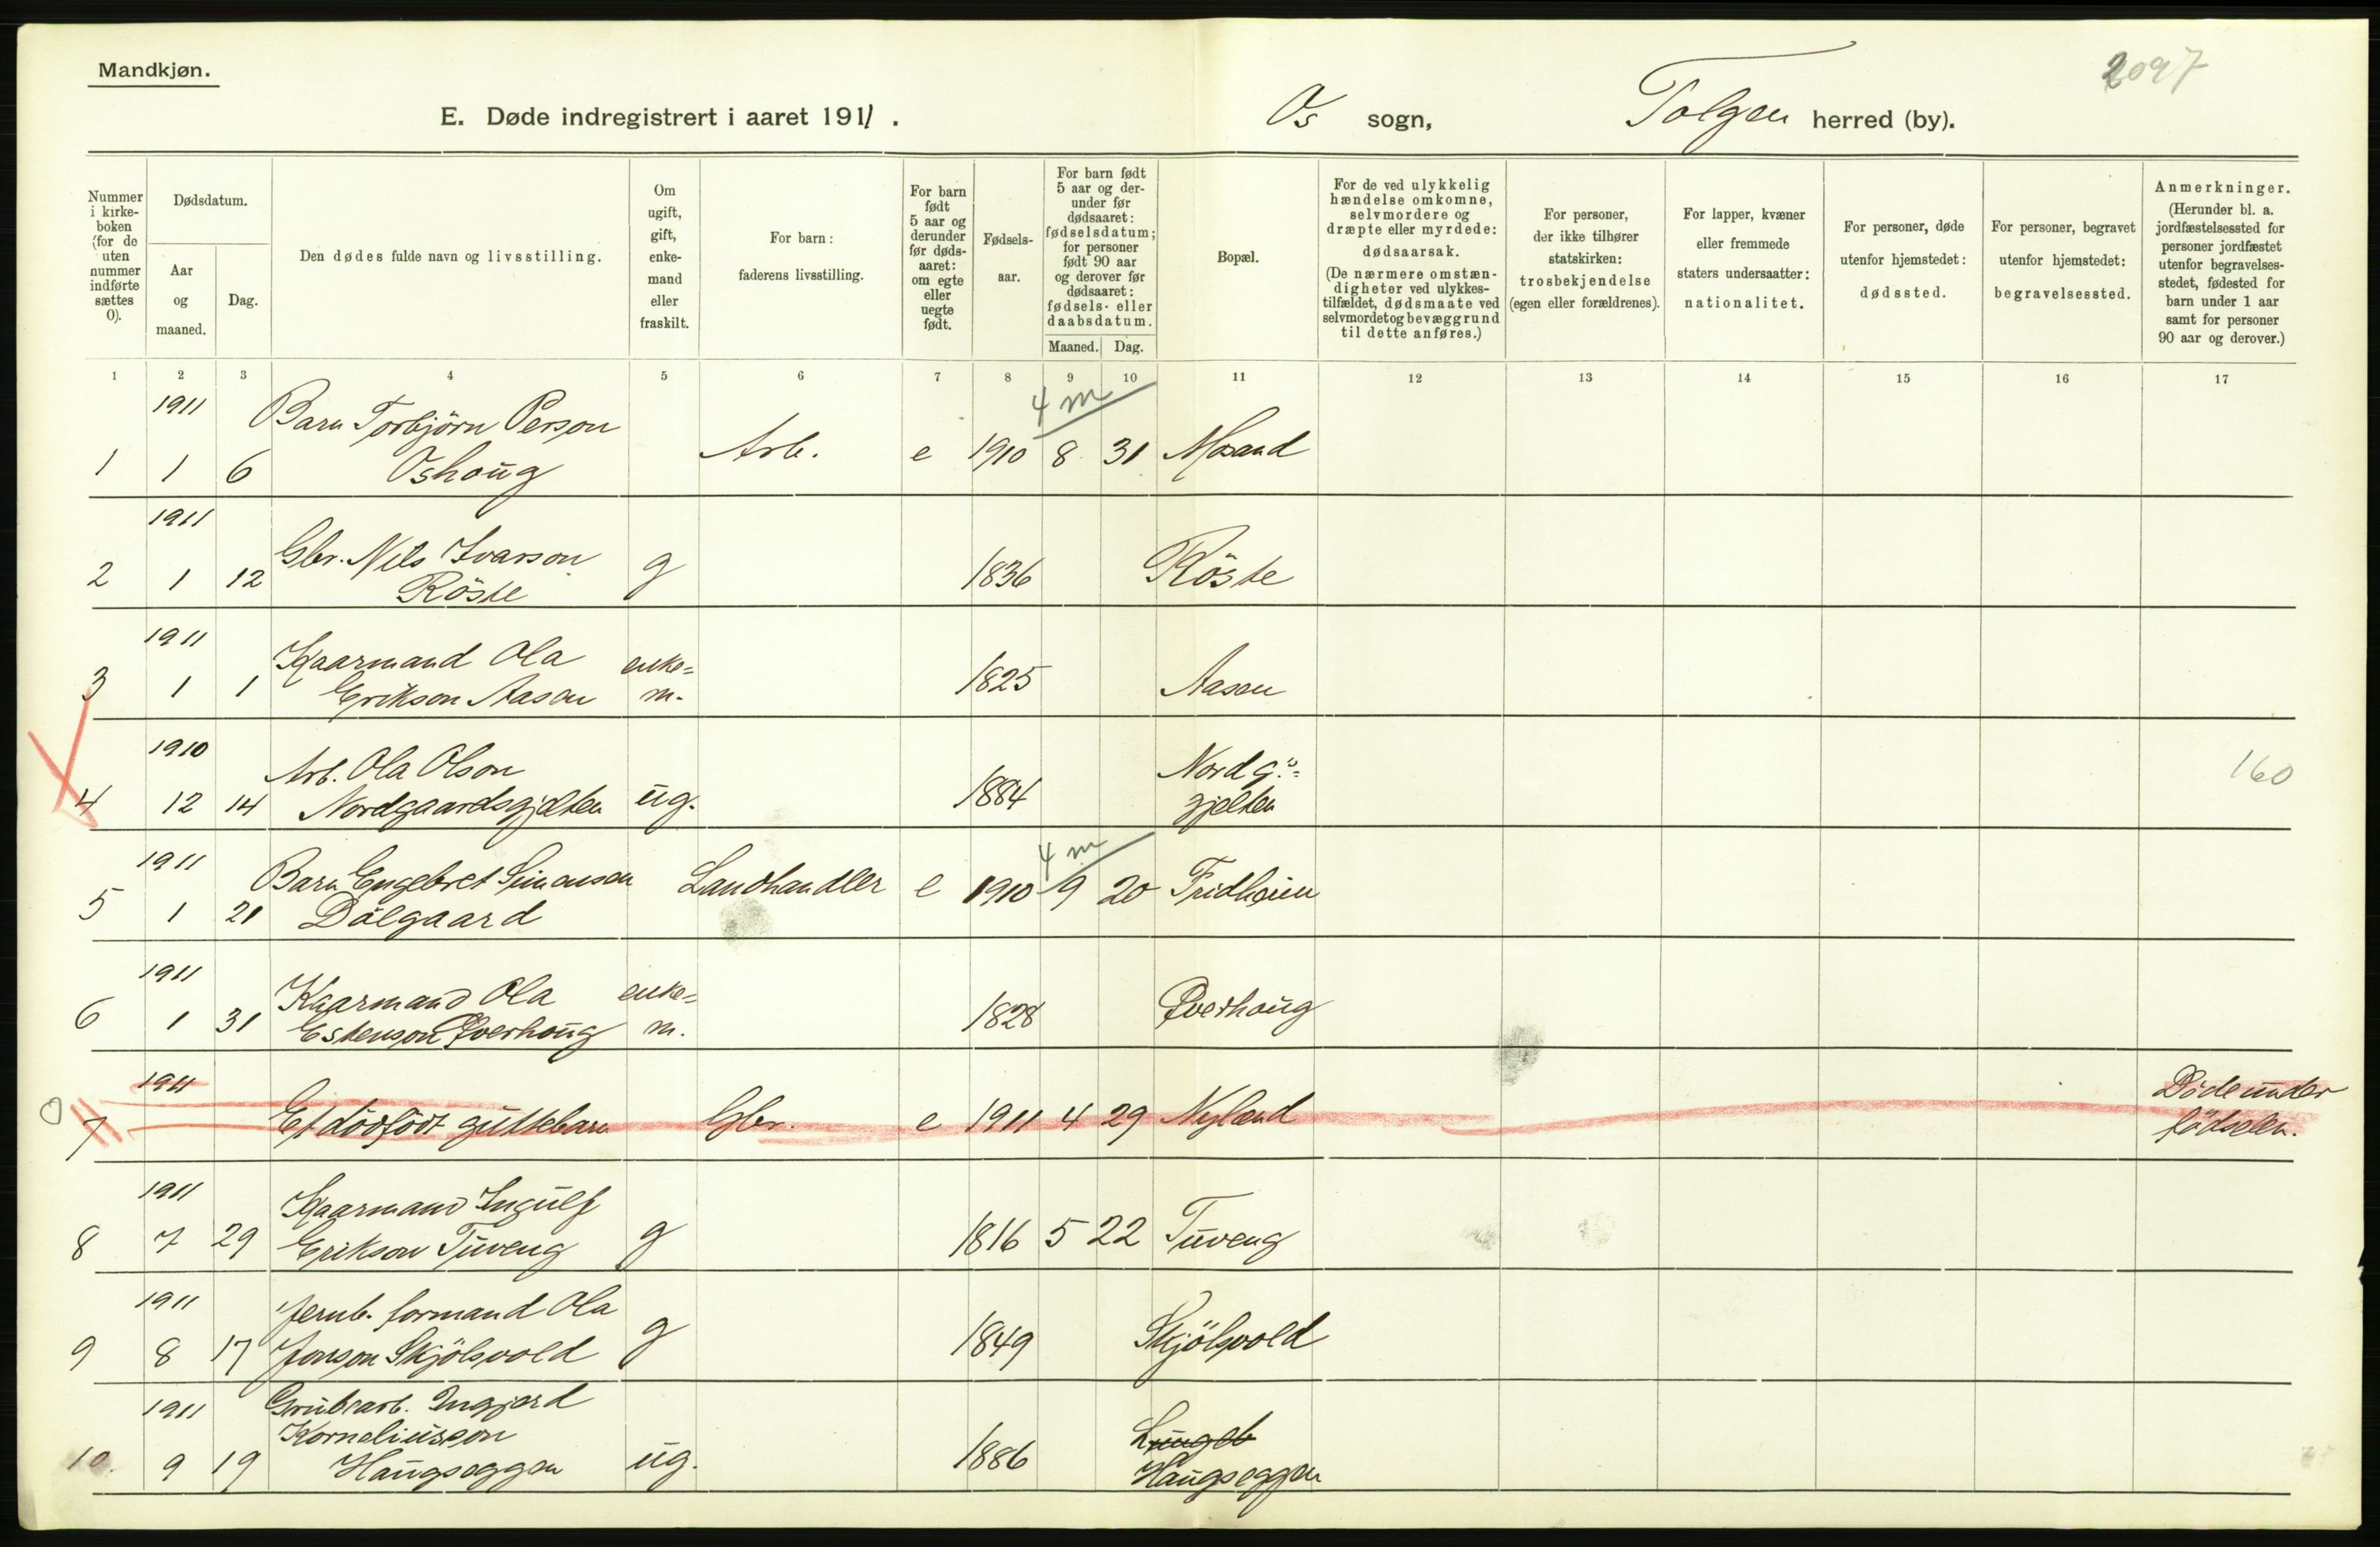 Mandkjøn.
2097
E. Døde indregistrert i aaret 1911.
Os sogn,
Tolgen herred (by).
Nummer i kirke-boken (for de uten nummer indførte sættes 0).
Dødsdatum.
Aar og maaned.
Dag.
Den dødes fulde navn og livsstilling.
Om ugift, gift, enke-mand eller fraskilt.
For barn: faderens livsstilling.
For barn født 5 aar og derunder før døds-aaret: om egte eller uegte født.
Fødsels-aar.
For barn født 5 aar og der-under før dødsaaret: fødselsdatum; for personer født 90 aar og derover før dødsaaret: fødsels- eller daabsdatum.
Maaned. Dag.
Bopæl.
For de ved ulykkelig hændelse omkomne, selvmordere og dræpte eller myrdede: dødsaarsak. (De nærmere omstæn-digheter ved ulykkes-tilfældet, dødsmaate ved selvmordet og bevæggrund til dette anføres.)
For personer, der ikke tilhører statskirken: trosbekjendelse (egen eller forældrenes).
For lapper, kvæner eller fremmede staters undersaatter: nationalitet.
For personer, døde utenfor hjemstedet: dødssted.
For personer, begravet utenfor hjemstedet: begravelsessted.
Anmerkninger. (Herunder bl. a. jordfæstelsessted for personer jordfæstet utenfor begravelses-stedet, fødested for barn under 1 aar samt for personer 90 aar og derover.)
1 2 3 4 5 6 7 8 9 10 11 12 13 14 15 16 17
1911 Barn Torbjörn Person 4 m
1 1 6 Oshoug Arb. e 1910 8 31 Mosand
1911 Gbr. Nils Ivarson
2 1 12 Röste g 1836 Röste
1911 Kaarmand Ola enke=
3 1 1 Erikson Aasen m. 1825 Aasen
1910 Arb. Ola Olson Nordg.s=
4 12 14 Nordgaardsgjelten ug. 1884 gjelten 160
1911 Barn Engebret Simonsen Landhandler 4 m
5 1 21 Dalgaard e 1910 9 20 Fridheim
1911 Kaarmand Ola enke=
6 1 31 Estenson Øverhoug m. 1828 Øverhoug
0 1911 Döde under
7 Et dödfödt guttebarn Gbr. e 1911 4 29 Nyland födselen.
1911 Kaarmand Ingulf
8 7 29 Erikson Tuveng g 1816 5 22 Tuveng
1911 Jernb. formand Ola
9 8 17 Jonson Skjölsvold g 1849 Skjölsvold
1911 Grubearb. Ingjerd
Korneliusson
10. 9 19 Haugseggen ug. 1886 Haugseggen